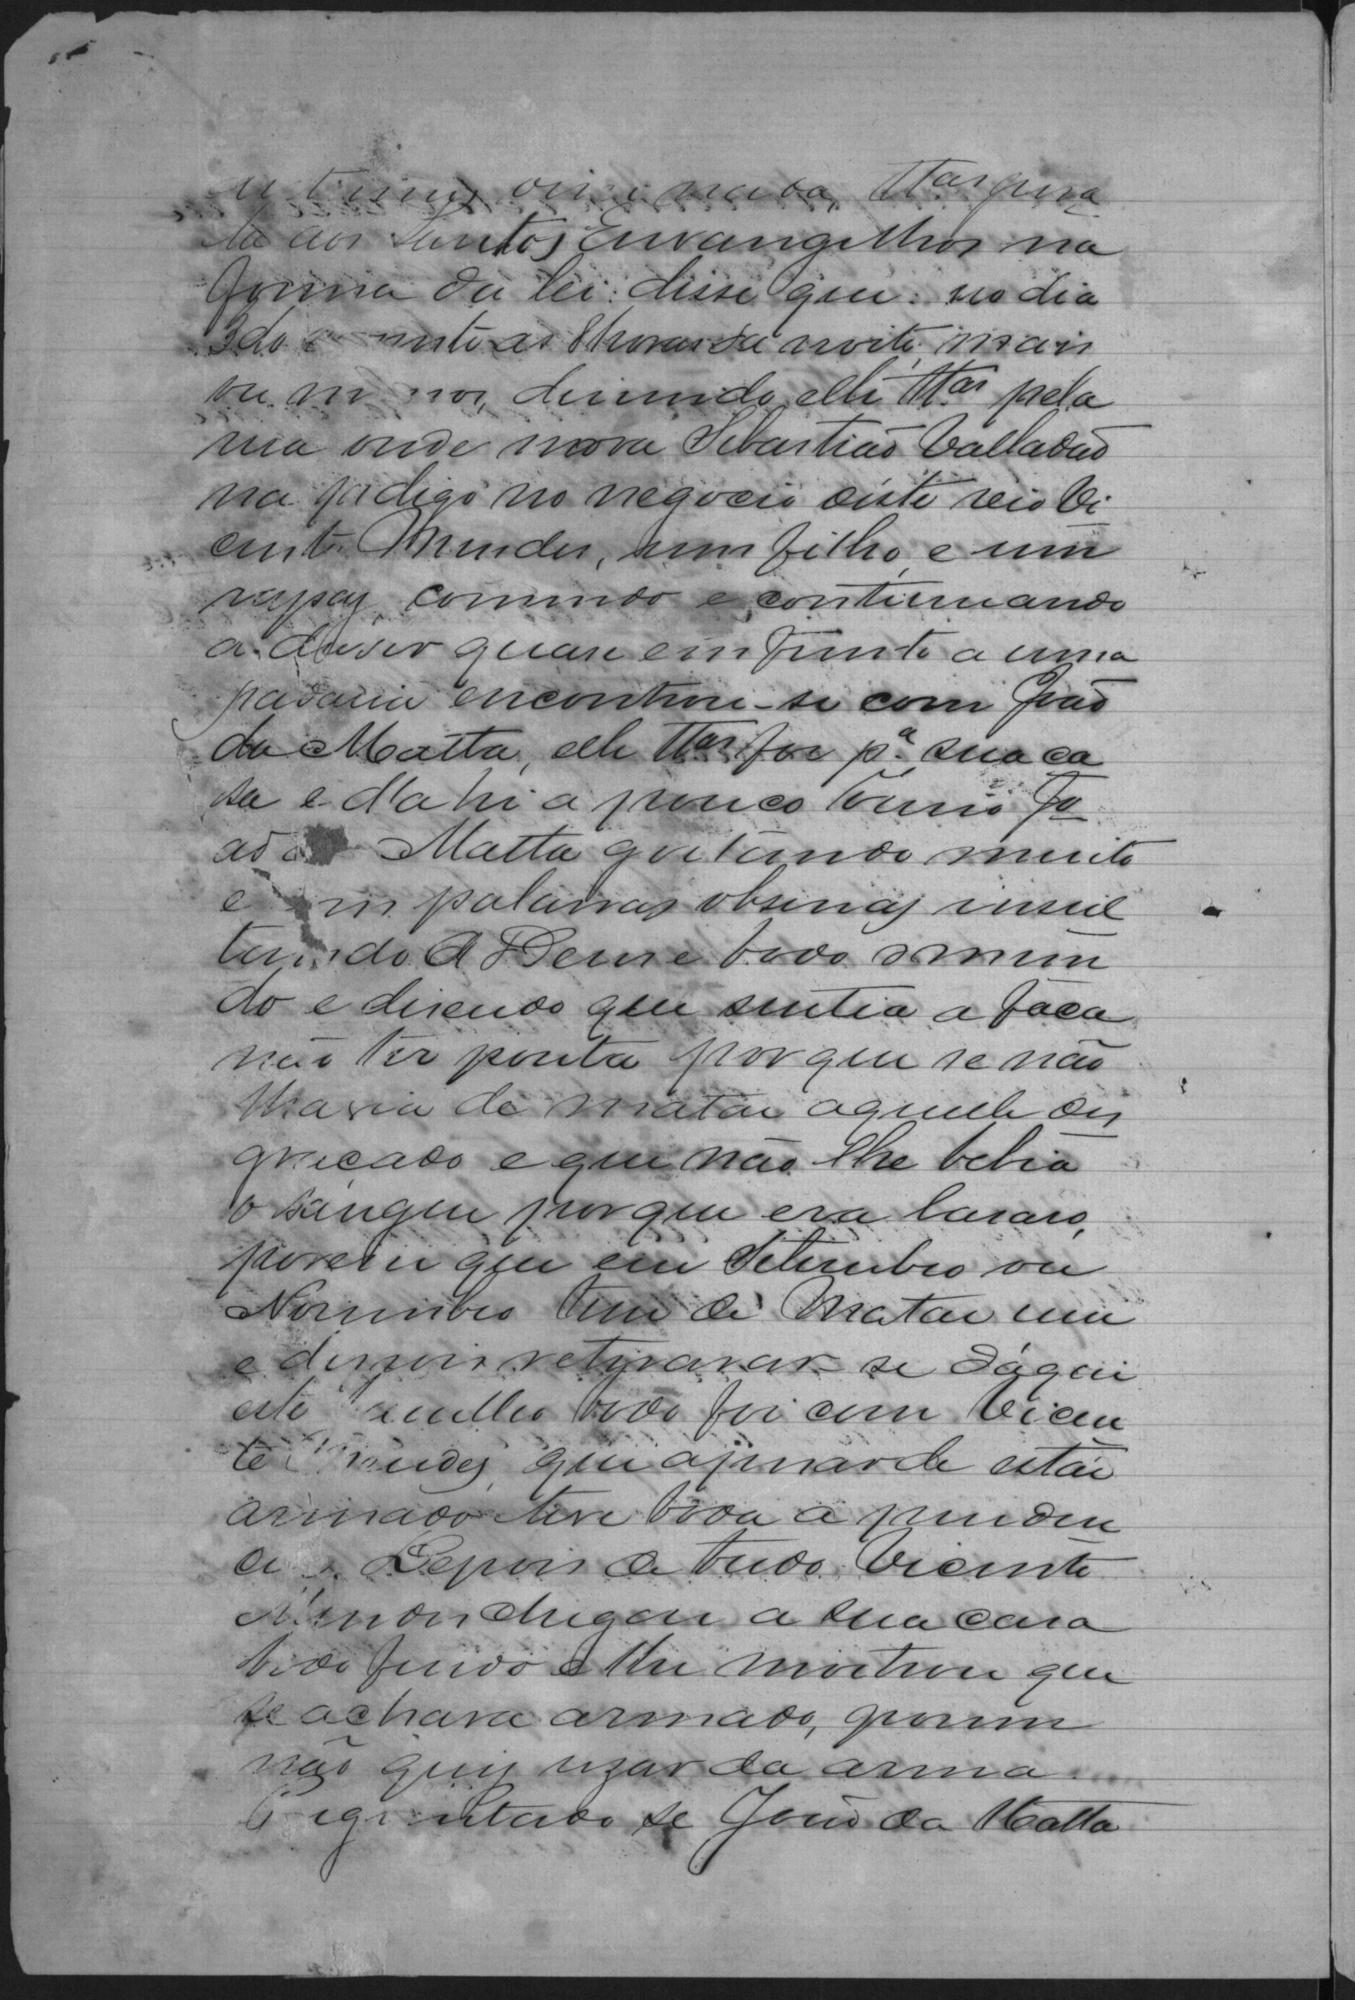 nada, Ttas jura
da aos Santos Envangelhos na
forma da lei: disse que: no dia
3 do as 8 horas da noite, mais
ou menos, descendo elle Ttas pela
rua onde mora Sebastião Valladão
na p digo no negocio deste vio Vi
cente Mendes, seu filho e um
rapaz, comendo e continuando
a descer quase em frente a uma
padaria encontrou-se com João
da Matta, elle Ttas foi pª sua ca
sa e d'ahi a pouco Jo
ão da Matta gritando muito
e em palavras obsenas insul
tando a Deus e todo o mun
do e disendo que sentia a faca
não ter ponta porque se não
havia de matar aquelle des
graçado e que não lhe bebia
o sangue porque era lasaro,
porem que em Setembro ou
Novembro tem de matar um
e depois retirar se d'aqui
este todo foi com Vicen
te Mendes, que apesar de estar
armado teve toda a pruden
cia. Depois de tudo Vicente
Mendes chegou a sua casa
todo ferido e lhe mostrou que
se achava armado, porem
não quiz uzar da arma.
Preguntado se João da Matta